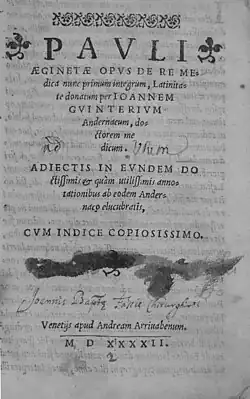 PAVLI
ÆGINETÆ OPVS DE RE ME-
dica nunc primum integrum, Latinita-
te donatum per IOANNEM
GVINTERIVM
Andernacum, do-
ctorem me
dicum.
ADIECTIS IN EVNDEM DO
ctissimis & quàm utilissimis anno-
tationibus ab eodem Ander-
naco elucubratis,
CVM INDICE COPIOSISSIMO.
Joannis Bapte
Venetijs apud Andream Arriuabenum.
M D XXXXII
2